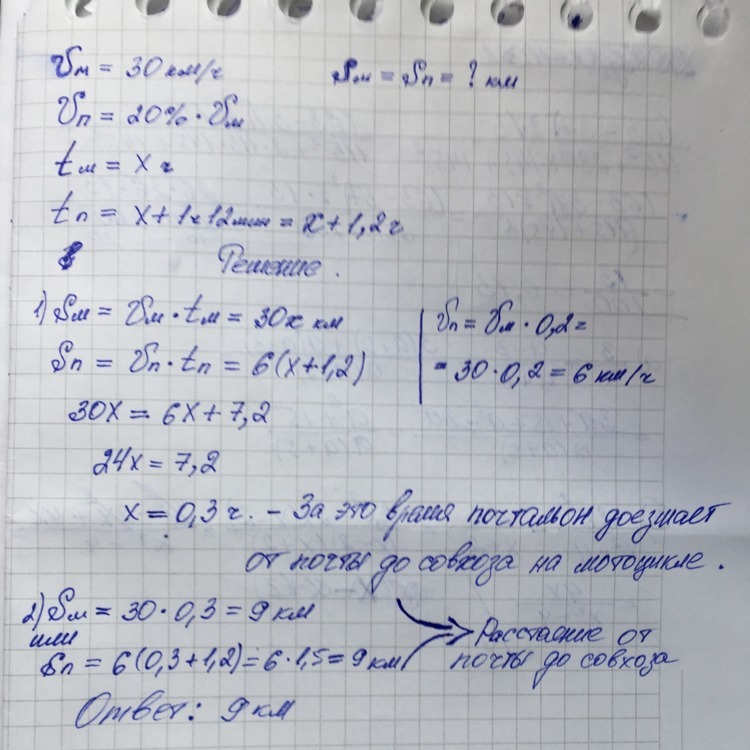 Vм = 30 км/ч Sм = Sп = ? км
Vп = 20% · Vм
tм = x ч
tп = x + 1ч12мин = x + 1,2 ч
Решение.
1) Sм = Vм · tм = 30x км
Vп = Vм · 0,2 =
Sп = Vп · tп = 6(x+1,2)
= 30 · 0,2 = 6 км/ч
30x = 6x + 7,2
24x = 7,2
x = 0,3 ч. – За это время почтальон доезжает
от почты до совхоза на мотоцикле.
2) Sм = 30 · 0,3 = 9 км
или
Sп = 6(0,3+1,2) = 6 · 1,5 = 9 км
Расстояние от
почты до совхоза
Ответ: 9 км